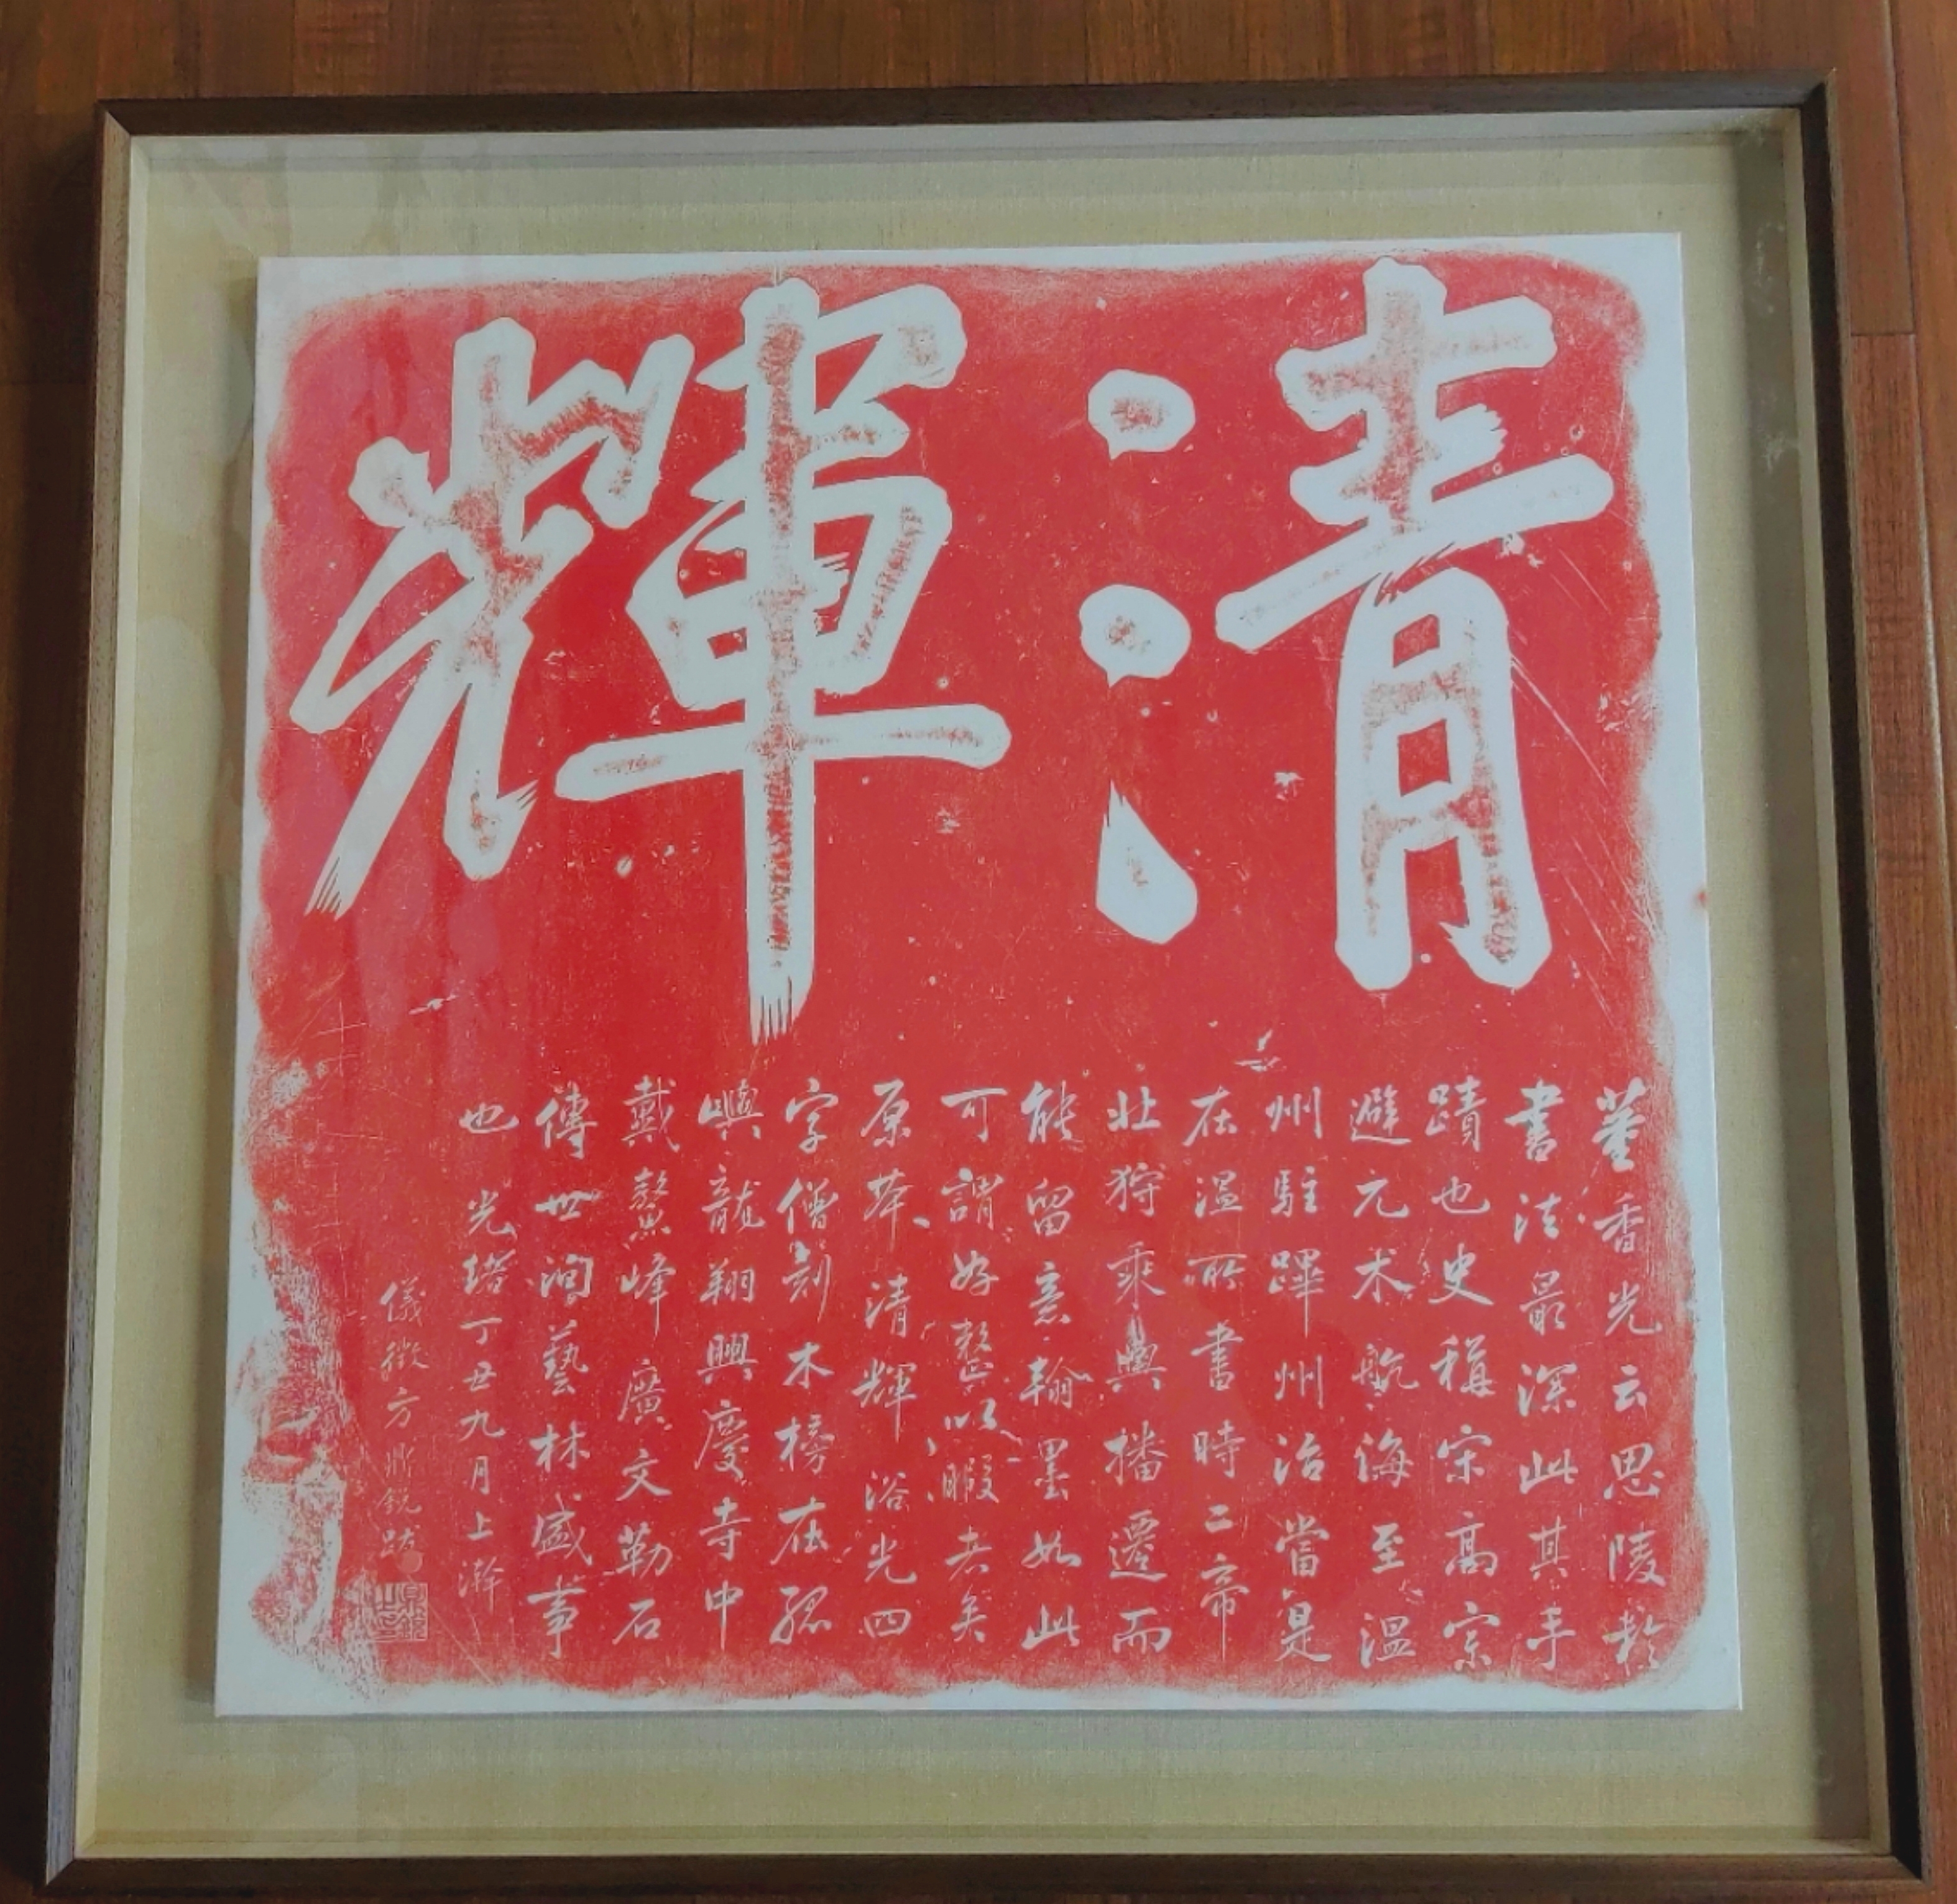 清輝
董香光云思陵於
書法最深此其手
蹟也史稱宋高宗
避元术航海至溫
州駐蹕州治當是
在溫所書時二帝
北狩乘輿播遷而
能留意翰墨如此
可謂好整以暇者矣
原本清輝浴光四
字僧刻木榜在孤
嶼龍翔興慶寺中
戴鰲峰廣文勒石
傳世洵藝林盛事
也光緒丁丑九月上澣
儀徵方鼎銳跋